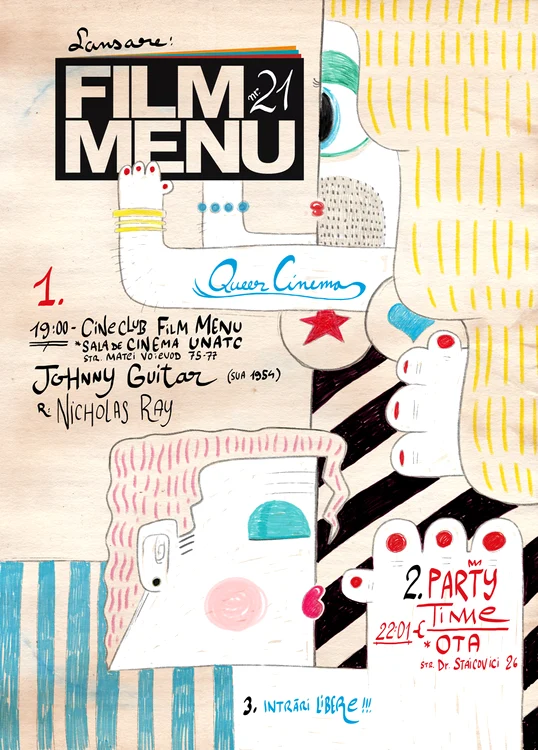 Lansare:
FILM
nr. 21
MENU
Queer Cinema
1.
19:00 - CiNeCLUB FiLM MENU
*SALA DE CINEMA UNATC
STR. MATEI VOiEVOD 75-77
JOHNNY GUiTaR (SUA 1954)
R: NiCHOLAS RAY
2. PARTY
TiMe
22:01 -
* OTA
STR. Dr. STAiCOViCi 26
3. INTRĂRI LiBERe !!!